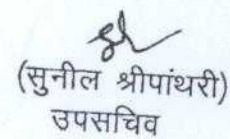 (सुनील श्रीपांथरी)
उपसचिव